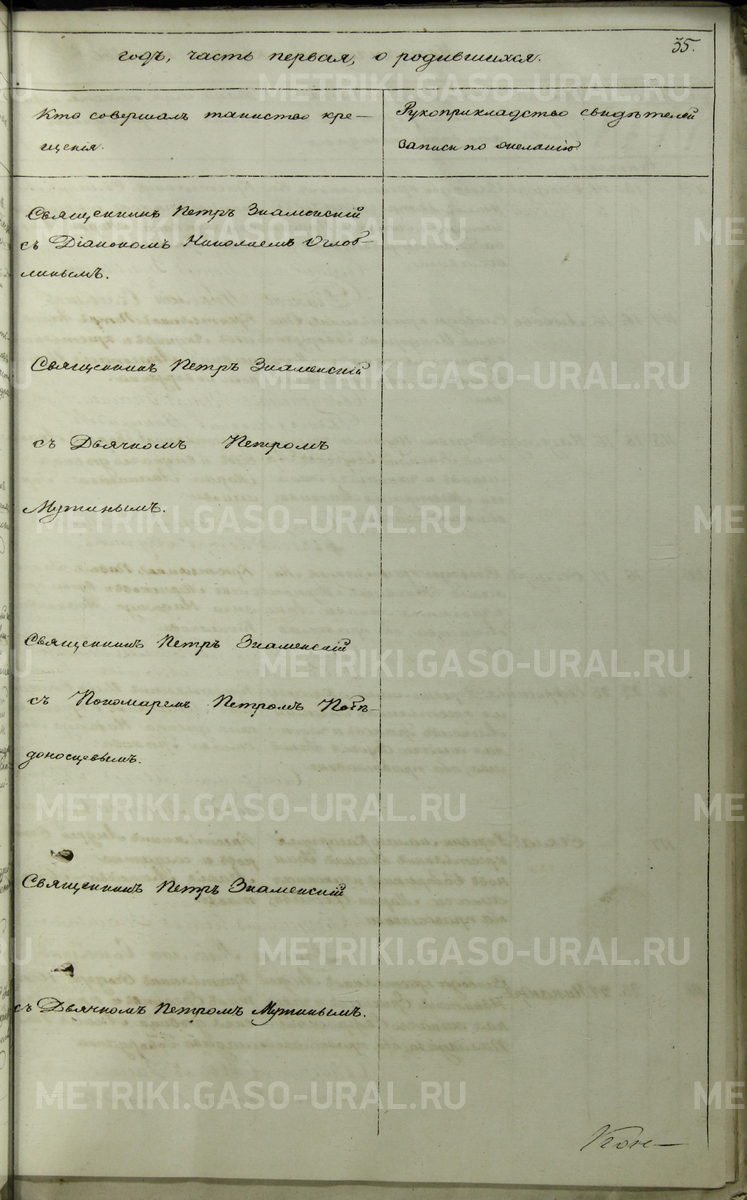 35.
годъ, часть первая, о родившихся.
Кто совершалъ таинство кре-
щенія.
Рукоприкладство свидѣтелей
записи по желанію
Священникъ Петръ Знаменскій
съ Діакономъ Николаемъ Оглоб-
линымъ.
Священникъ Петръ Знаменскій
съ Дьячкомъ Петромъ
Мутинымъ.
Священникъ Петръ Знаменскій
съ Пономаремъ Петромъ Побѣ-
доносцевымъ.
Священникъ Петръ Знаменскій
съ Дьячкомъ Петромъ Мутинымъ.
METRIKI.GASO-URAL.RU